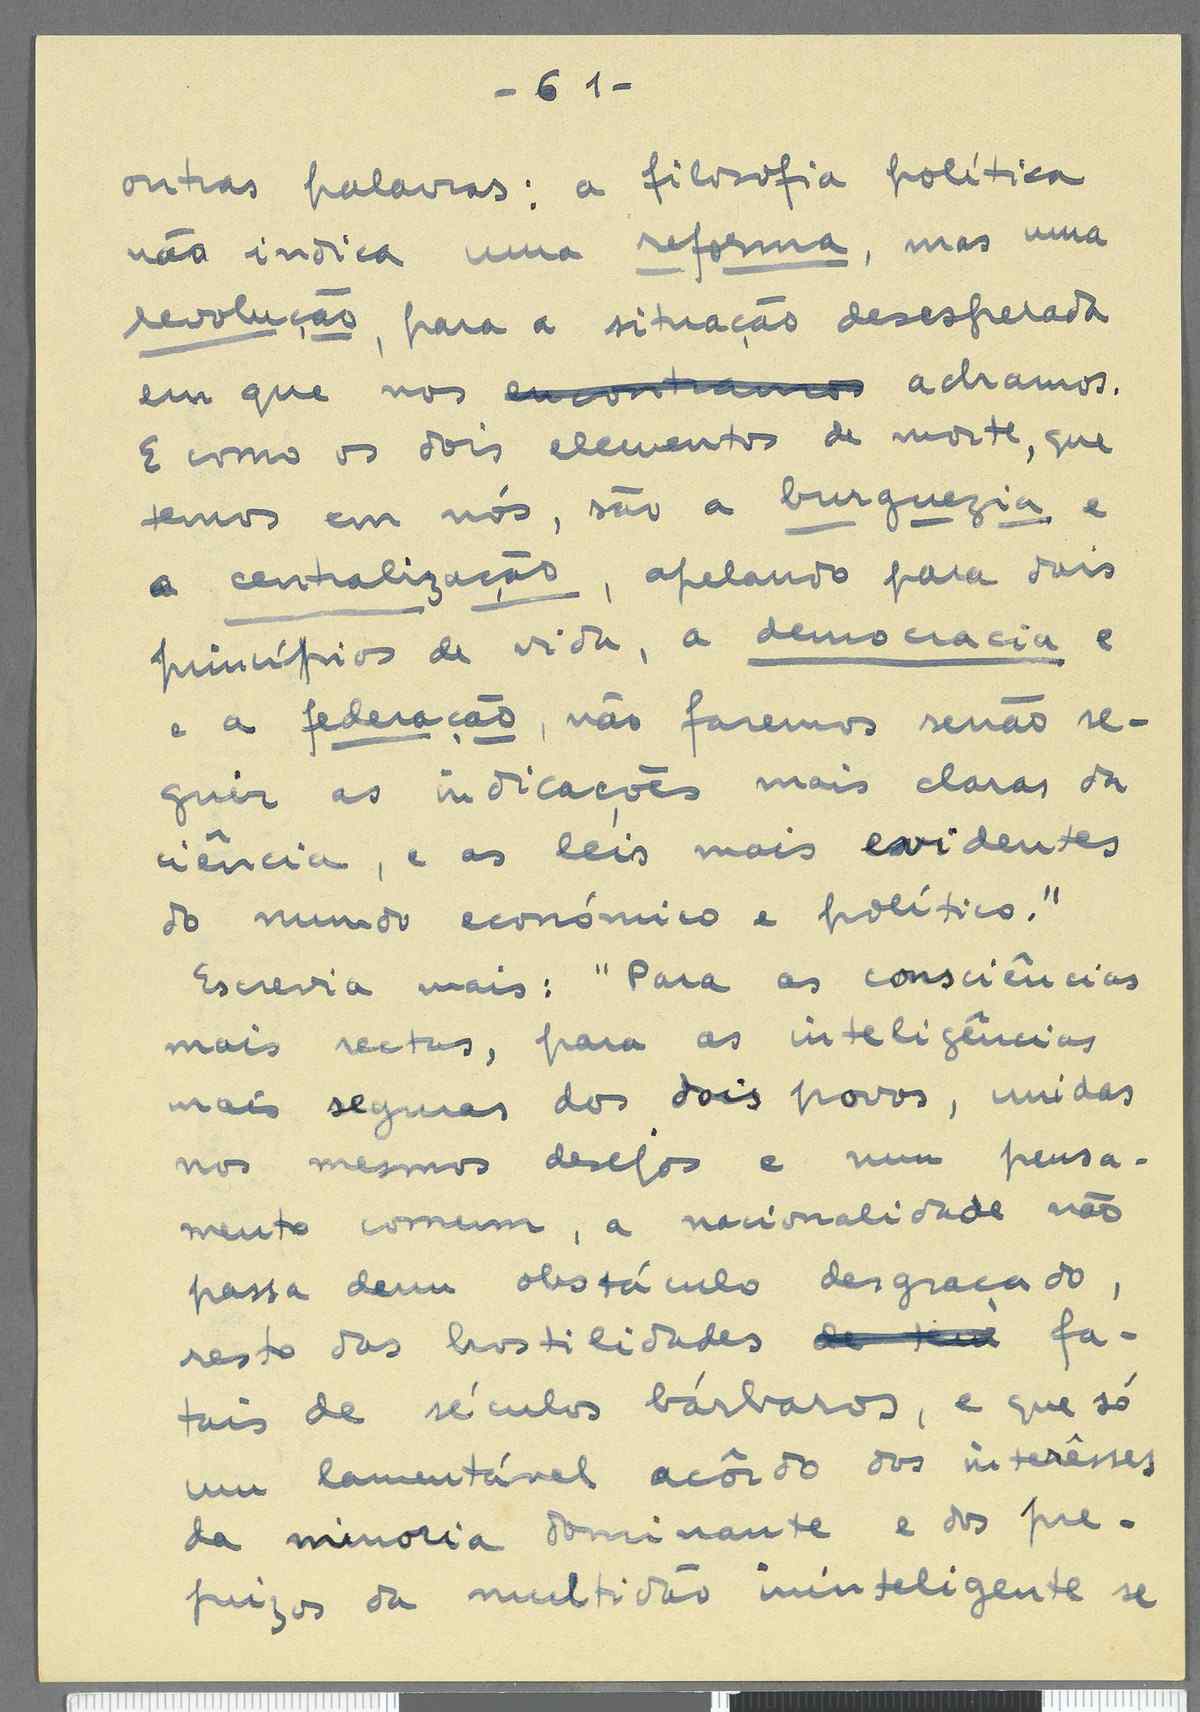 - 61 -
outras palavras: a filosofia política
não indica uma reforma, mas uma
revolução, para a situação desesperada
em que nos encontramos achamos.
E como os dois elementos de morte, que
temos em nós, são a burguezia e
a centralização, apelando para dois
princípios de vida, a democracia e
e a federação, não faremos senão se-
guir as indicações mais claras da
ciência, e as leis mais evidentes
do mundo económico e político."
Escrevia mais: "Para as consciências
mais rectas, para as inteligências
mais seguras dos dois povos, unidas
nos mesmos desejos e num pensa-
mento comum, a nacionalidade não
passa dum obstáculo desgraçado,
resto das hostilidades de fa-
tais de séculos bárbaros, e que só
um lamentável acôrdo dos interêsses
da minoria dominante e dos pre-
juizos da multidão ininteligente se